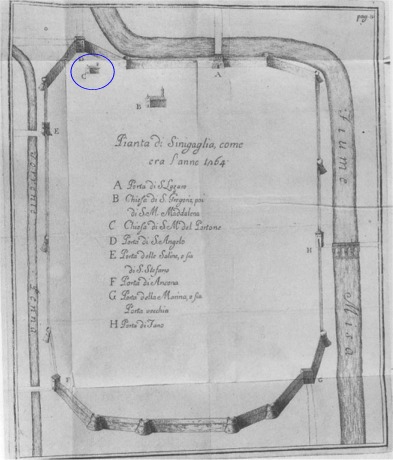 pag.
A
C
B
E
Fiume
Pianta di Sinigaglia, come
era l'anno 1464
A Porta di S.
B Chiesa di S. Gregorio, poi
di S. M. Maddalena
C Chiesa di S. M. del Portone
D Porta di S. Angelo
E Porta delle Saline, o sia
di S. Stefano
F Porta di Ancona
G Porta della Marina, o sia
Porta vecchia
H Porta di Fano
H
Misa
F
G